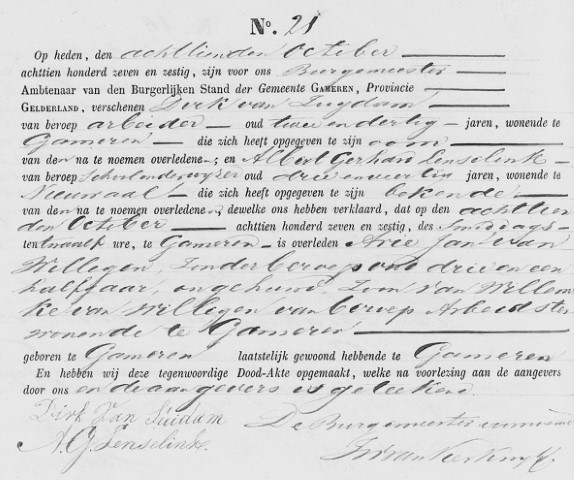 No. 21
Op heden, den achttienden October
achttien honderd zeven en zestig, zijn voor ons Burgemeester
Ambtenaar van den Burgerlijken Stand der Gemeente GAMEREN, Provincie
GELDERLAND, verschenen Dirk van Zuijdam
van beroep arbeider oud twee en dertig jaren, wonende te
Gameren die zich heeft opgegeven te zijn oom
van den na te noemen overledenen; en Albert Gerhard Lenselink
van beroep Schoolonderwyzer oud drie en veertig jaren, wonende te
Nieuwaal die zich heeft opgegeven te zijn bekende
van den na te noemen overledenen, dewelke ons hebben verklaard, dat op den achttien
den October achttien honderd zeven en zestig, des Smiddags
ten twaalf ure, te Gameren is overleden Arie Jan van
Willigen, zonder beroep oud drie en een
half jaar, ongehuwd. Zoon van Willem
ke van Willigen van beroep Arbeidster
wonende te Gameren
geboren te Gameren laatstelijk gewoond hebbende te Gameren
En hebben wij deze tegenwoordige Dood-Akte opgemaakt, welke na voorlezing aan de aangevers
door ons en de aangevers is geteekend.
Dirk Van Suidam
A. G. Lenselink.
De Burgemeester voornoemd